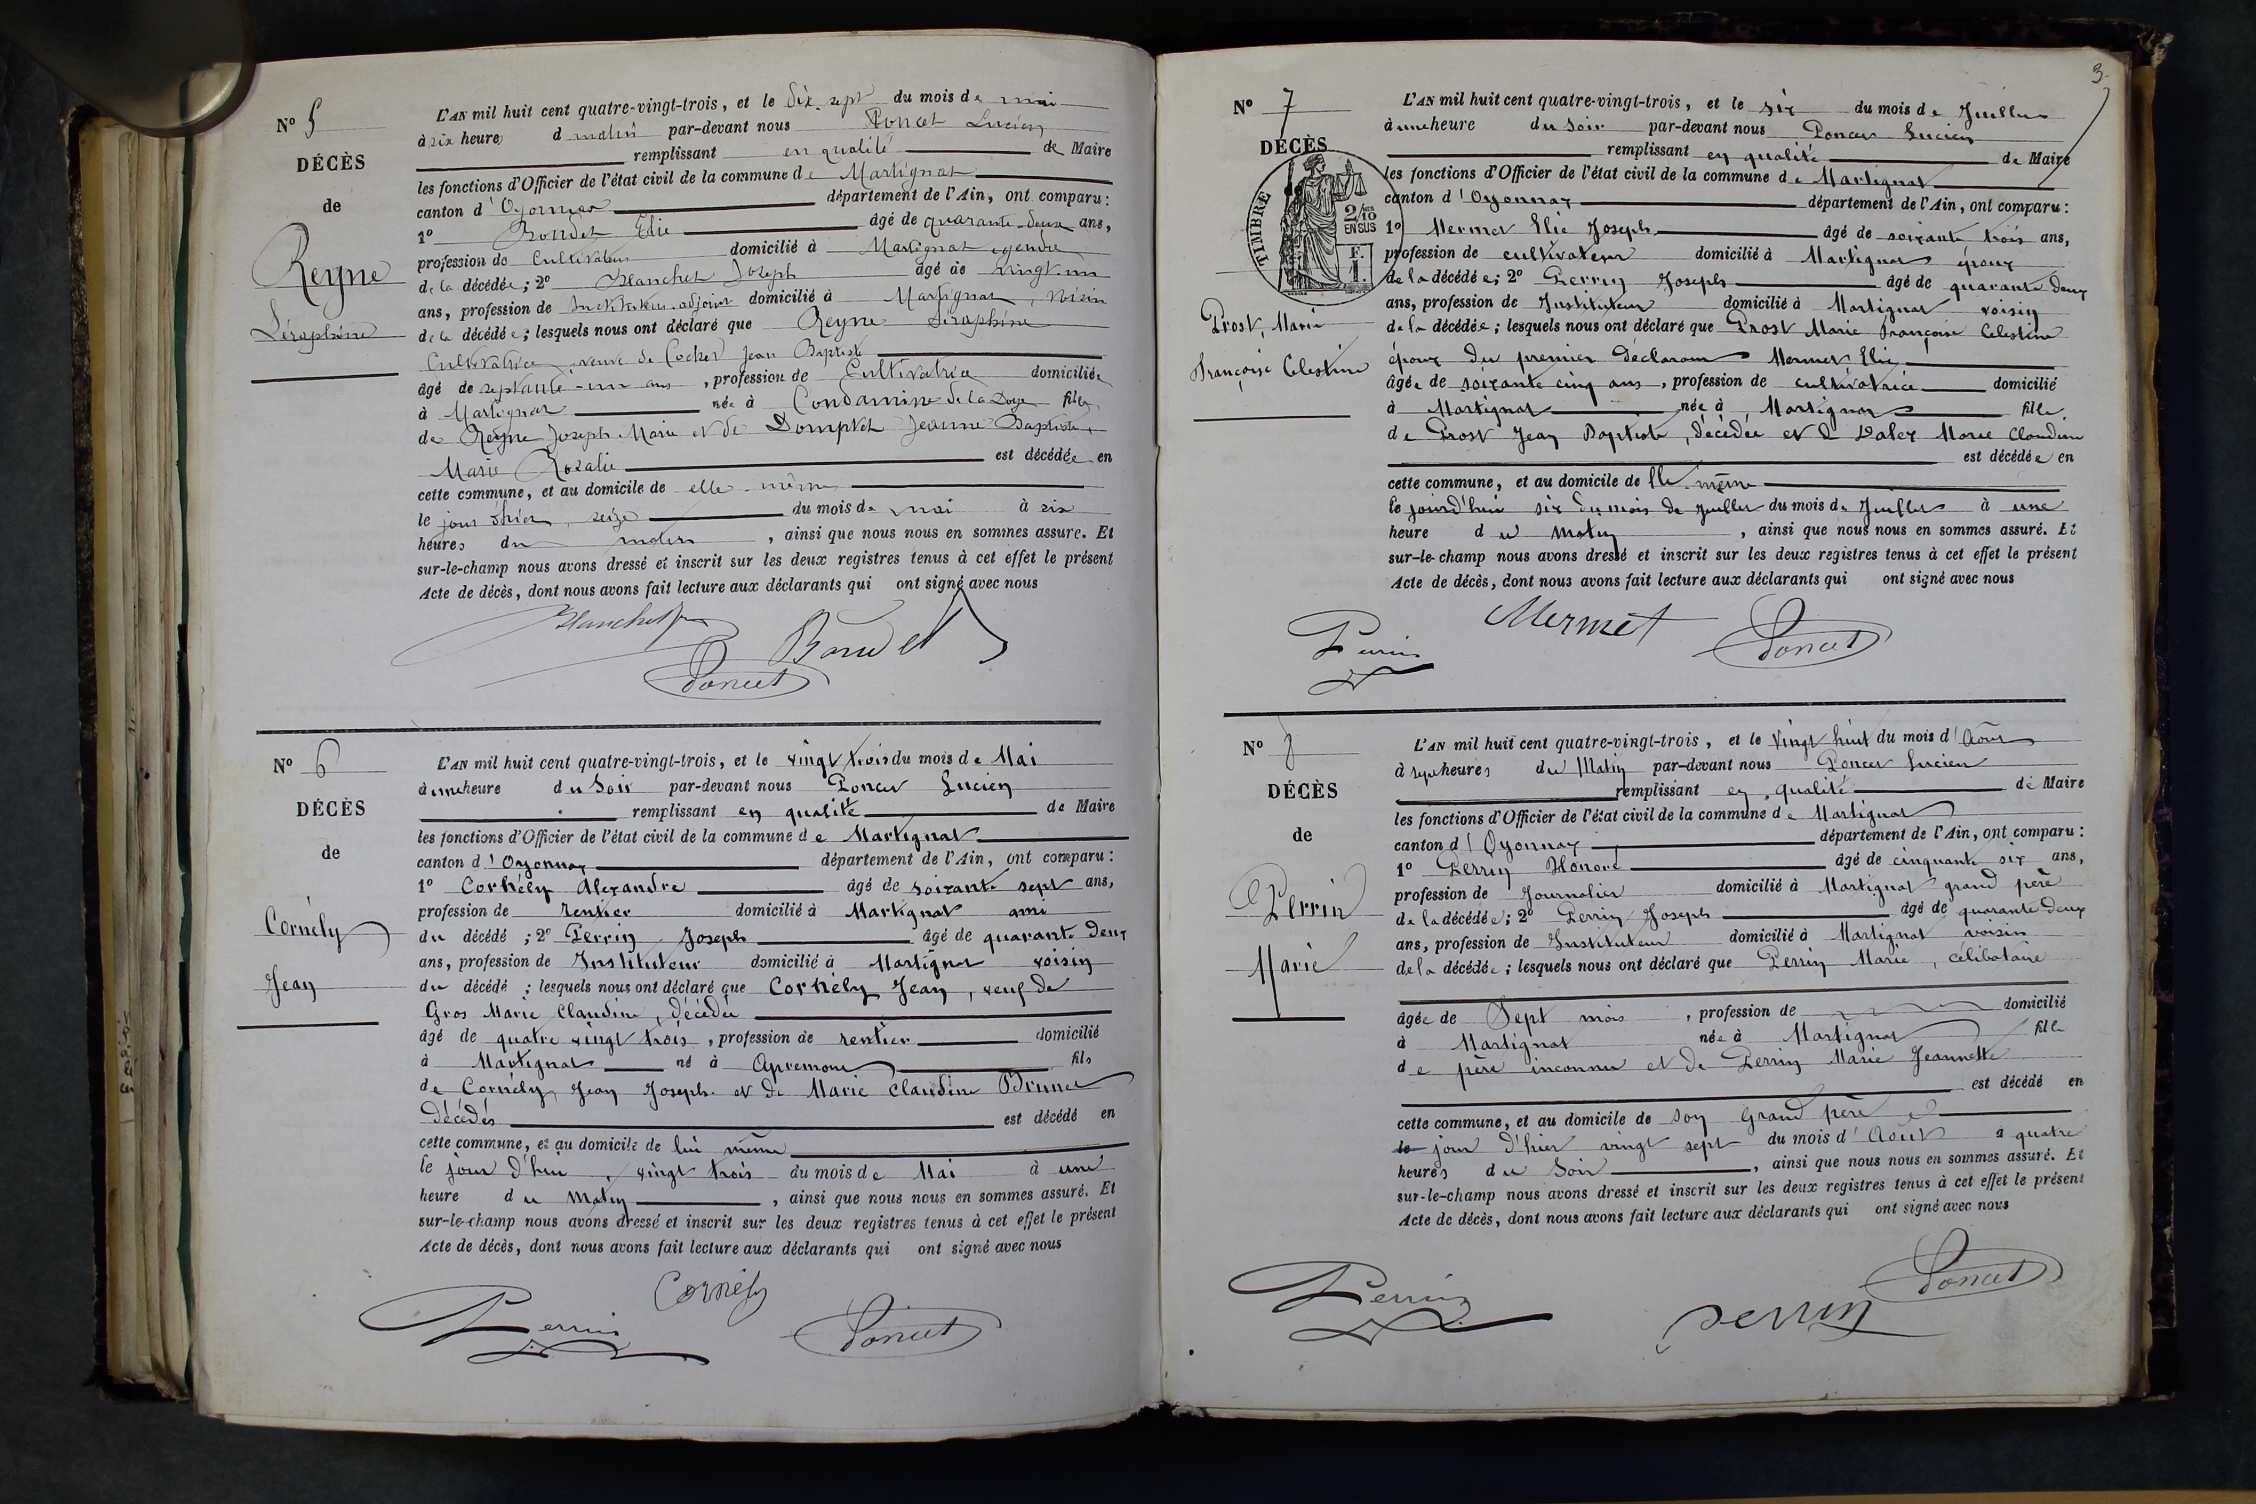 Nº 5
DÉCÈS
de
Reyne
Séraphine
L'AN mil huit cent quatre-vingt-trois, et le dix-sept du mois de mai
à six heures d matin par-devant nous Poncet Lucien
remplissant en qualité de Maire
les fonctions d'Officier de l'état civil de la commune de Martignat
canton d'Oyonnax département de l'Ain, ont comparu:
1º Boudet Elie âgé de quarante-deux ans,
profession de Cultivateur domicilié à Martignat, gendre
de la décédée; 2º Blanchet Joseph âgé de vingt-un
ans, profession de Instituteur-adjoint domicilié à Martignat, voisin
de la décédée; lesquels nous ont déclaré que Reyne Séraphine
Cultivatrice, veuve de Cochet Jean Baptiste
âgé de septante-un ans, profession de Cultivatrice domiciliée
à Martignat née à Condamine de la Doye fille
de Reyne Joseph Marie et de Dompret Jeanne Baptiste,
Marie Rosalie est décédée en
cette commune, et au domicile de elle-même
le jour d'hier, seize du mois de mai à six
heures du matin, ainsi que nous nous en sommes assuré. Et
sur-le-champ nous avons dressé et inscrit sur les deux registres tenus à cet effet le présent
Acte de décès, dont nous avons fait lecture aux déclarants qui ont signé avec nous
Blanchet Boudet
Poncet
Nº 6
DÉCÈS
de
Cornély
Jean
L'AN mil huit cent quatre-vingt-trois, et le vingt trois du mois de Mai
à une heure du Soir par-devant nous Poncet Lucien
remplissant en qualité de Maire
les fonctions d'Officier de l'état civil de la commune de Martignat
canton d'Oyonnax département de l'Ain, ont comparu:
1º Cornély Alexandre âgé de soixante sept ans,
profession de rentier domicilié à Martignat ami
du décédé; 2º Perrin Joseph âgé de quarante deux
ans, profession de Instituteur domicilié à Martignat voisin
du décédé; lesquels nous ont déclaré que Cornély Jean, veuf de
Gros Marie Claudine, décédée
âgé de quatre vingt trois, profession de rentier domicilié
à Martignat né à Apremont fils
de Cornély Jean Joseph et de Marie Claudine Brunet
décédés est décédé en
cette commune, et au domicile de lui même
le jour d'hui, vingt trois du mois de Mai à une
heure du Matin, ainsi que nous nous en sommes assuré. Et
sur-le-champ nous avons dressé et inscrit sur les deux registres tenus à cet effet le présent
Acte de décès, dont nous avons fait lecture aux déclarants qui ont signé avec nous
Cornély
Perrin Poncet
3
Nº 7
DÉCÈS
de
TIMBRE
2/10
EN SUS
F.
1.
Prost, Marie
Françoise Celestine
L'AN mil huit cent quatre-vingt-trois, et le six du mois de Juillet
à une heure du Soir par-devant nous Poncet Lucien
remplissant en qualité de Maire
les fonctions d'Officier de l'état civil de la commune de Martignat
canton d'Oyonnax département de l'Ain, ont comparu:
1º Mermet Elie Joseph âgé de soixante trois ans,
profession de cultivateur domicilié à Martignat époux
de la décédée; 2º Perrin Joseph âgé de quarante deux
ans, profession de Instituteur domicilié à Martignat voisin
de la décédée; lesquels nous ont déclaré que Prost Marie Françoise Celestine
époux du premier déclarant Mermet Elie
âgée de soixante cinq ans, profession de cultivatrice domicilié
à Martignat née à Martignat fille
de Prost Jean Baptiste, décédée et de Marie Claudine
est décédée en
cette commune, et au domicile de Elle même
le jourd'hui six du mois de Juillet du mois de Juillet à une
heure du Matin, ainsi que nous nous en sommes assuré. Et
sur-le-champ nous avons dressé et inscrit sur les deux registres tenus à cet effet le présent
Acte de décès, dont nous avons fait lecture aux déclarants qui ont signé avec nous
Perrin Mermet Poncet
Nº 8
DÉCÈS
de
Perrin
Marie
L'AN mil huit cent quatre-vingt-trois, et le vingt huit du mois d'Août
à sept heures du Matin par-devant nous Poncet Lucien
remplissant en qualité de Maire
les fonctions d'Officier de l'état civil de la commune de Martignat
canton d'Oyonnax département de l'Ain, ont comparu:
1º Perrin Honoré âgé de cinquante six ans,
profession de Journalier domicilié à Martignat grand père
de la décédée; 2º Perrin Joseph âgé de quarante deux
ans, profession de Instituteur domicilié à Martignat voisin
de la décédée; lesquels nous ont déclaré que Perrin Marie, célibataire
âgée de Sept mois, profession de domicilié
à Martignat née à Martignat fille
de père inconnu et de Perrin Marie Jeannette
est décédé en
cette commune, et au domicile de son Grand père
le jour d'hier vingt sept du mois d'Août à quatre
heures du Soir, ainsi que nous nous en sommes assuré. Et
sur-le-champ nous avons dressé et inscrit sur les deux registres tenus à cet effet le présent
Acte de décès, dont nous avons fait lecture aux déclarants qui ont signé avec nous
Poncet
Perrin perrin